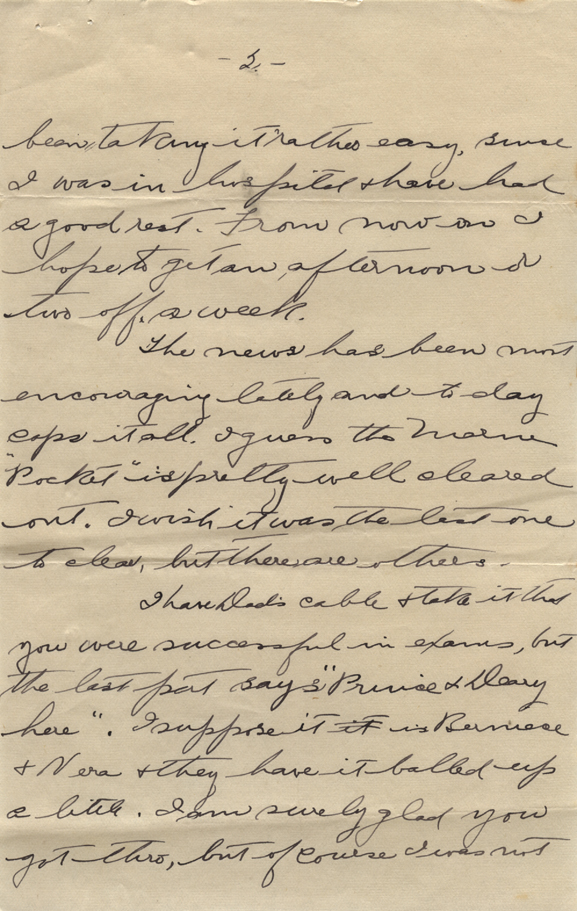 - 2. -
been taking it rather easy, since
I was in hospital & have had
a good rest. From now on I
hope to get an afternoon or
two off a week.
The news has been most
encouraging lately and to day
caps it all. I guess the Marne
"Pocket" is pretty well cleared
out. I wish it was the last one
to clear, but there are others.
I have Dad's cable & take it that
you were successful in exams, but
the last part says "Prince & Deary
here". I suppose it it is Berniece
& Vera & they have it balled up
a little. I am surely glad you
got thro, but of course I was not